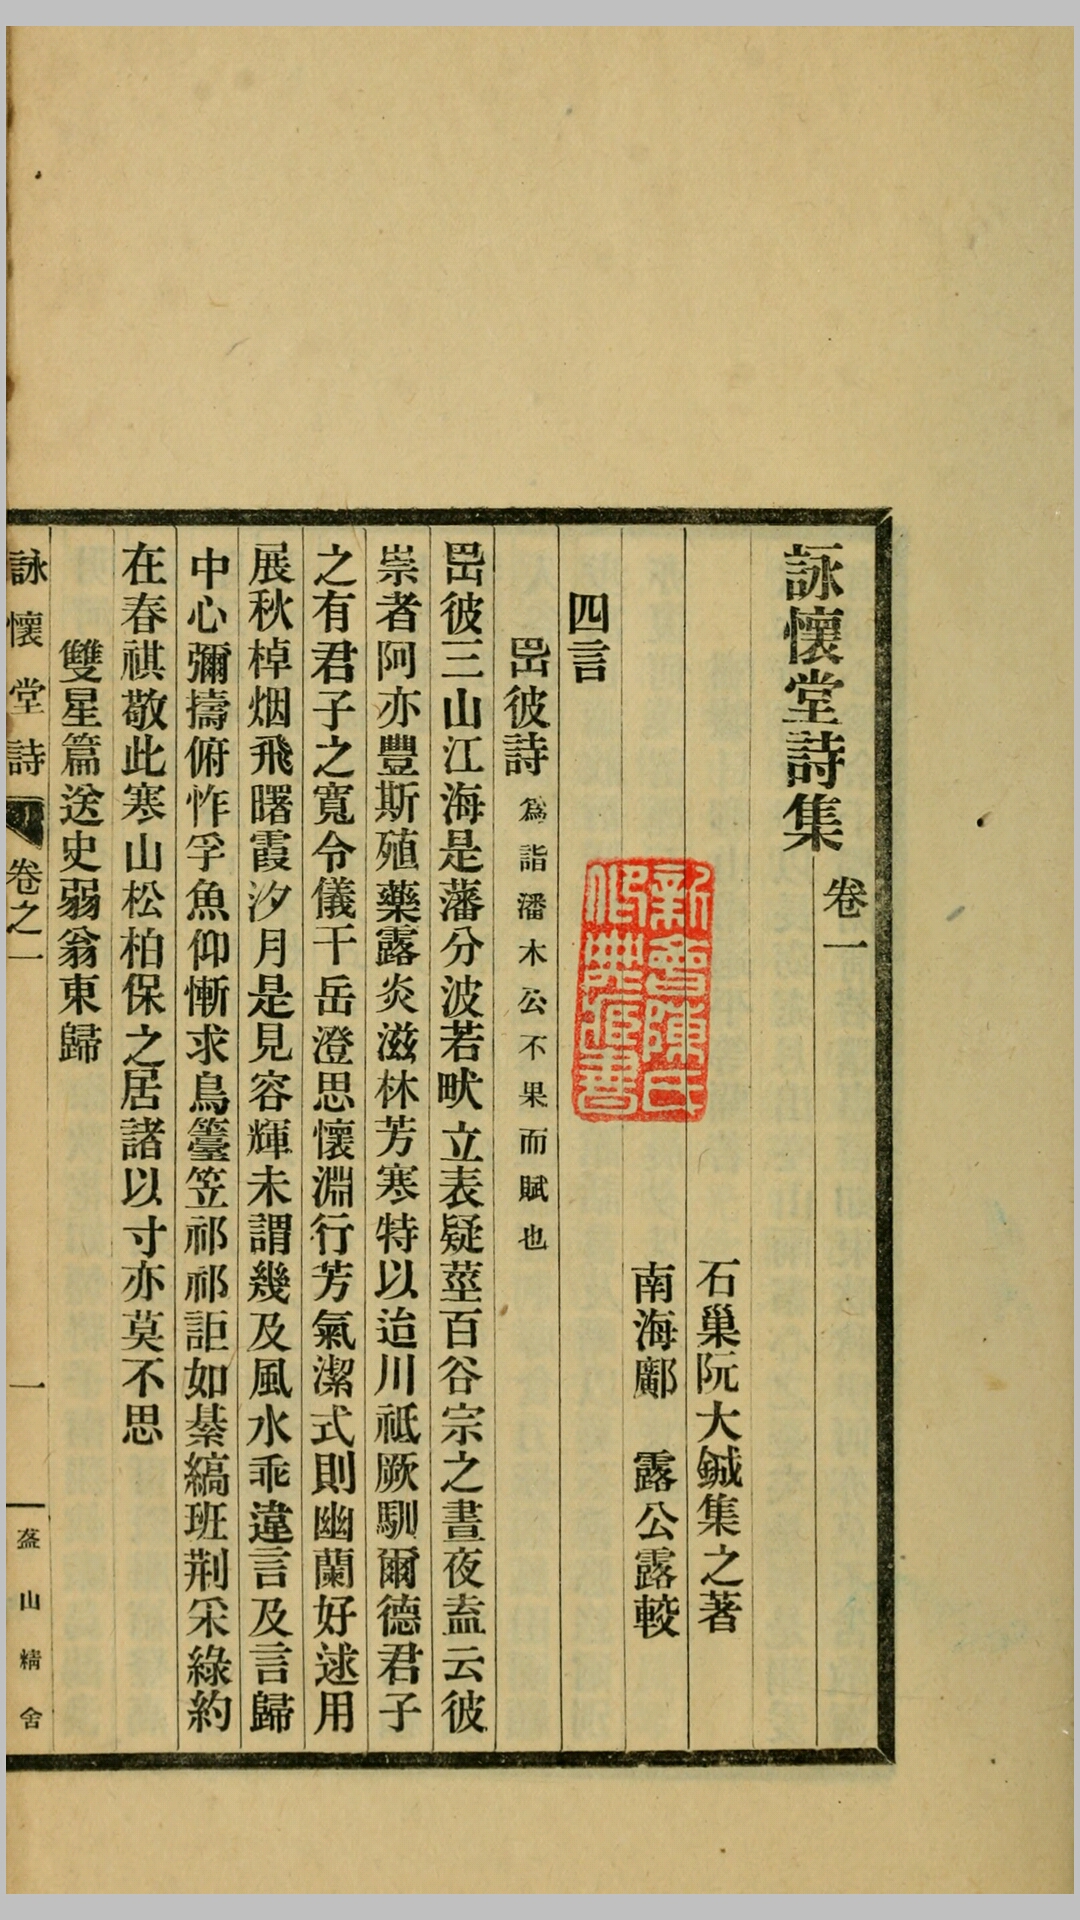 詠懷堂詩集
卷一
石巢阮大鋮集之著
南海鄺　露公露較
新會陳氏
修無恨書
四言
嵒彼詩爲詣潘木公不果而賦也
嵒彼三山江海是藩分波若畎立表疑莖百谷宗之晝夜盍云彼
崇者阿亦豐斯殖藥露炎滋林芳寒特以迨川祗厥馴爾德君子
之有君子之寬令儀干岳澄思懷淵行芳氣潔式則幽蘭好逑用
展秋棹烟飛曙霞汐月是見容輝未謂幾及風水乖違言及言歸
中心彌擣俯怍孚魚仰慚求鳥籉笠祁祁詎如綦縞班荆采綠約
在春祺敬此寒山松柏保之居諸以寸亦莫不思
雙星篇送史弱翁東歸
詠懷堂詩　卷之一　一　盔山精舍